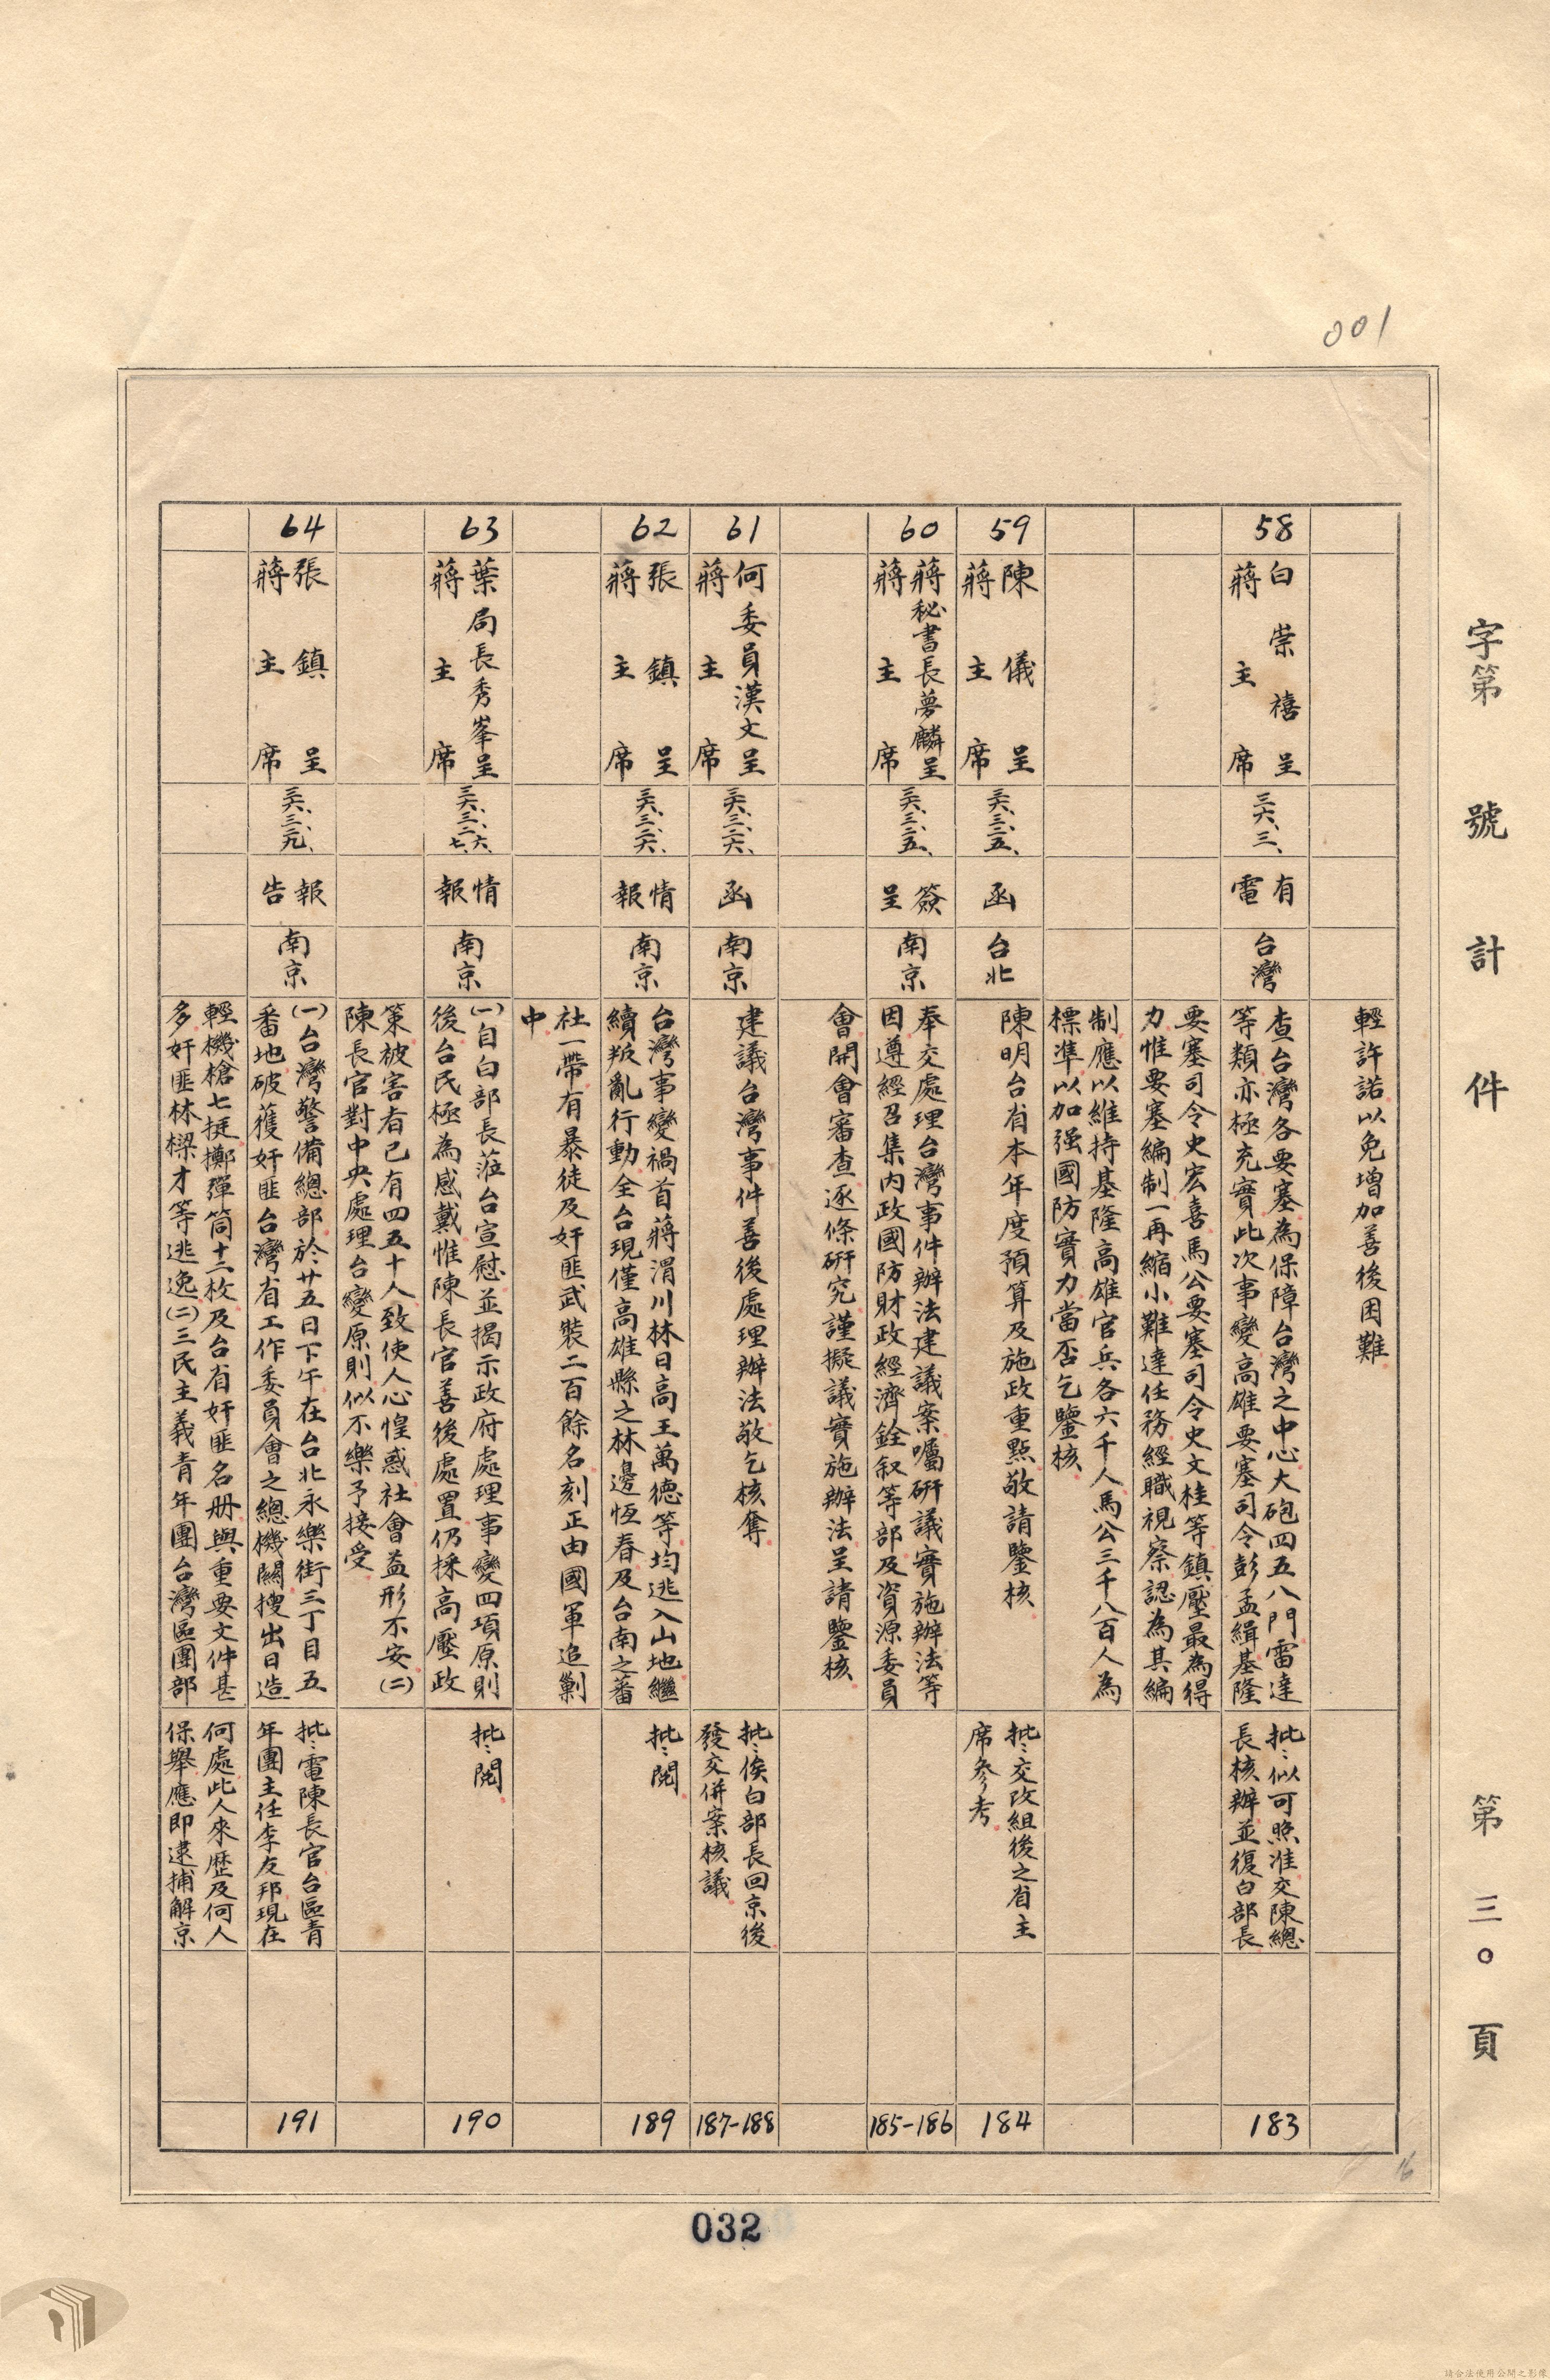 001
字第　號計　件　第三〇頁
輕許諾以免增加善後困難
58
白崇禧呈
蔣主席
三六、三、
有
電
台灣
查台灣各要塞為保障台灣之中心大砲四五八門雷達
等類亦極充實此次事變高雄要塞司令彭孟緝基隆
要塞司令史宏喜馬公要塞司令史文桂等鎮壓最為得
力惟要塞編制一再縮小難達任務經職視察認為其編
制應以維持基隆高雄官兵各六千人馬公三千八百人為
標準以加强國防實力當否乞鑒核
批：似可照准交陳總
長核辦並復白部長
183
59
陳儀呈
蔣主席
三六、三、二五、
函
台北
陳明台省本年度預算及施政重點敬請鑒核
批：交改組後之省主
席參考
184
60
蔣秘書長夢麟呈
蔣主席
三六、三、二五、
簽
呈
南京
奉交處理台灣事件辦法建議案囑研議實施辦法等
因遵經召集內政國防財政經濟銓叙等部及資源委員
會開會審查逐條研究謹擬議實施辦法呈請鑒核
185-186
61
何委員漢文呈
蔣主席
三六、三、二六、
函
南京
建議台灣事件善後處理辦法敬乞核奪
批：俟白部長回京後
發交併案核議
187-188
62
張鎮呈
蔣主席
三六、三、二六、
情
報
南京
台灣事變禍首蔣渭川林日高王萬德等均逃入山地繼
續叛亂行動全台現僅高雄縣之林邊恆春及台南之蕃
社一帶有暴徒及奸匪武裝二百餘名刻正由國軍追剿
中
批：閱
189
63
葉局長秀峯呈
蔣主席
三六、三、二六、
七、
情
報
南京
(一)自白部長蒞台宣慰並揭示政府處理事變四項原則
後台民極為感戴惟陳長官善後處置仍採高壓政
策被害者已有四五十人致使人心惶惑社會益形不安(二)
陳長官對中央處理台變原則似不樂予接受
批：閱
190
64
張鎮呈
蔣主席
三六、三、二九、
報
告
南京
(一)台灣警備總部於廿五日下午在台北永樂街三丁目五
番地破獲奸匪台灣省工作委員會之總機關搜出日造
輕機槍七挺擲彈筒十二枚及台省奸匪名册與重要文件甚
多奸匪林樑才等逃逸(二)三民主義青年團台灣區團部
批：電陳長官台區青
年團主任李友邦現在
何處此人來歷及何人
保舉應即逮捕解京
191
16
032
請合法使用公開之影像